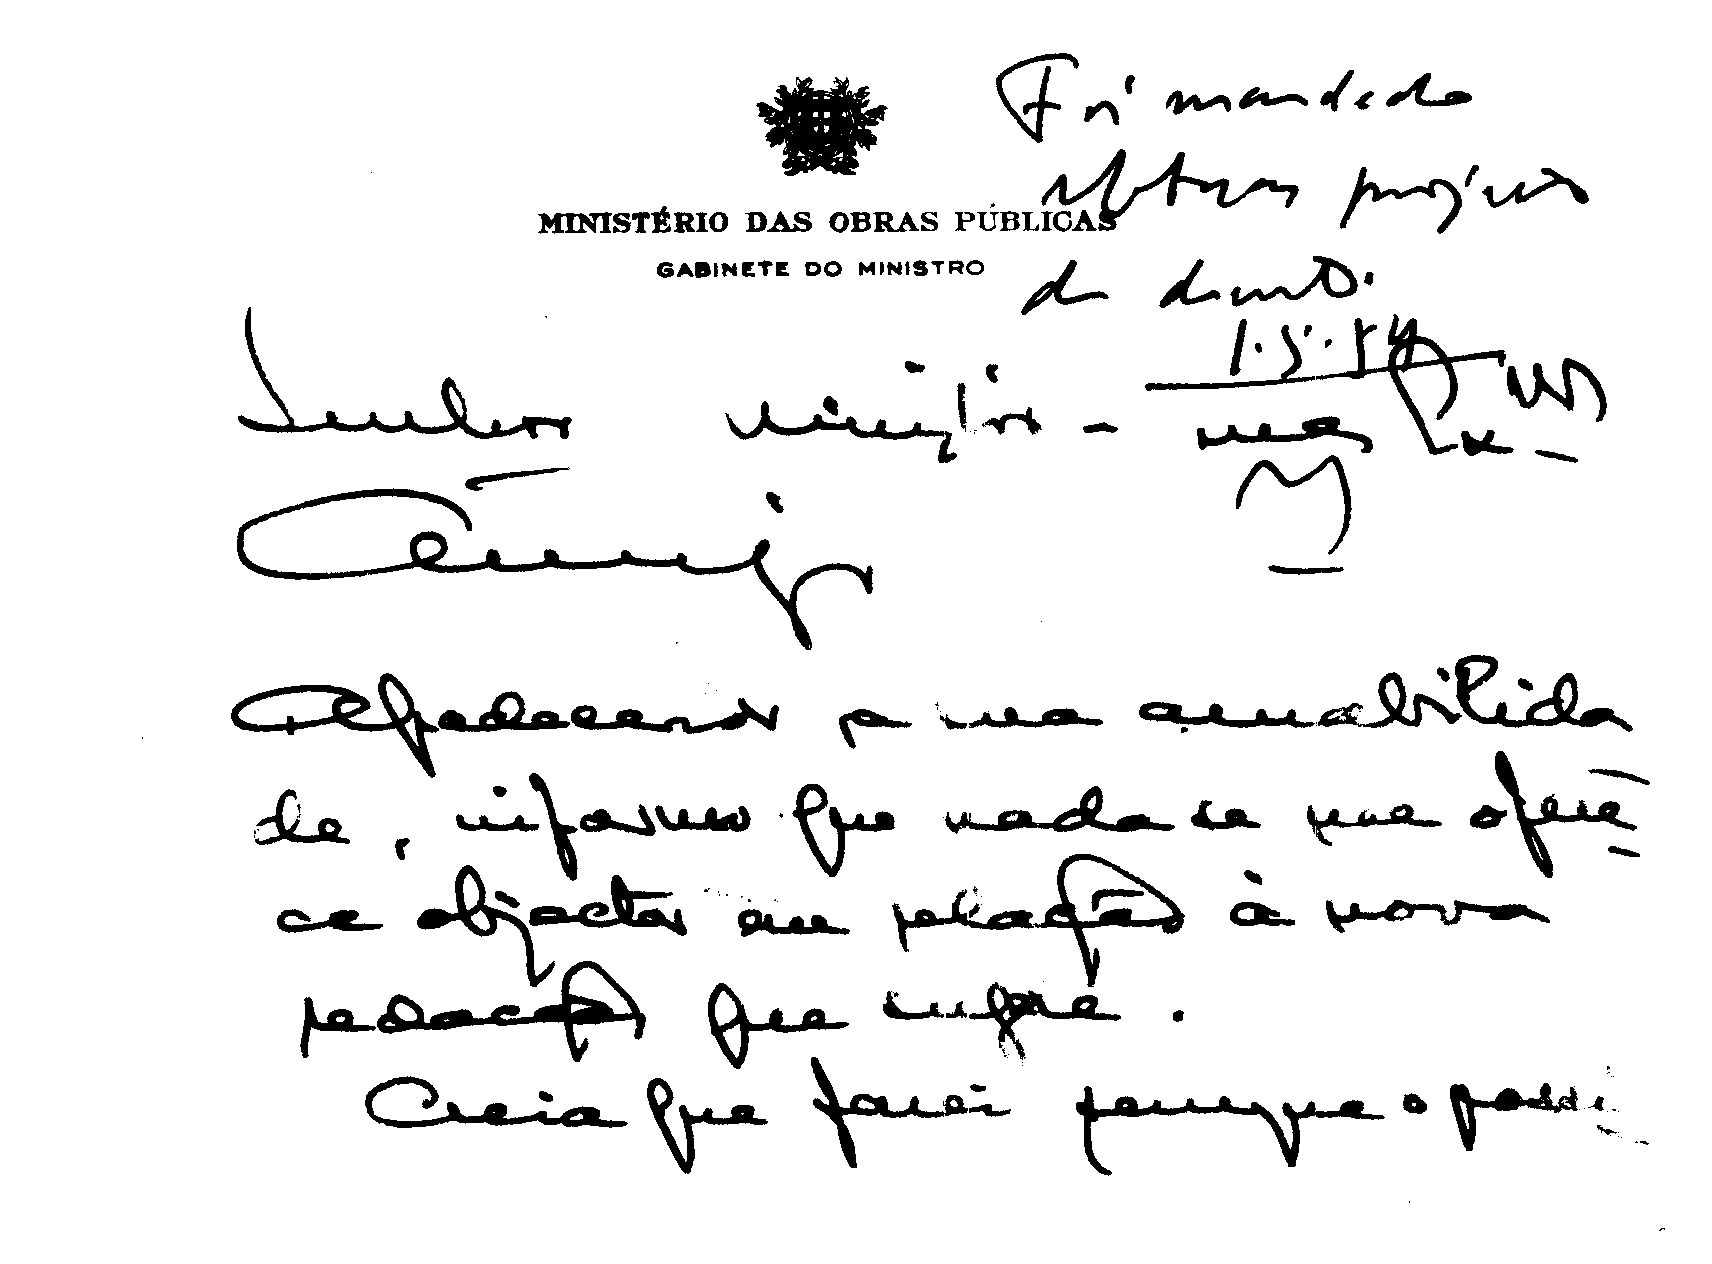 Foi mandado
MINISTÉRIO DAS OBRAS PÚBLICAS
GABINETE DO MINISTRO
1.5.54
Senhor Ministro - meu Ex-
Amigo
Agradecendo a sua amabilida
de, informo que nada se me ofere
ce objectar em relação à nova
redacção que sugere.
Creia que farei sempre o possi